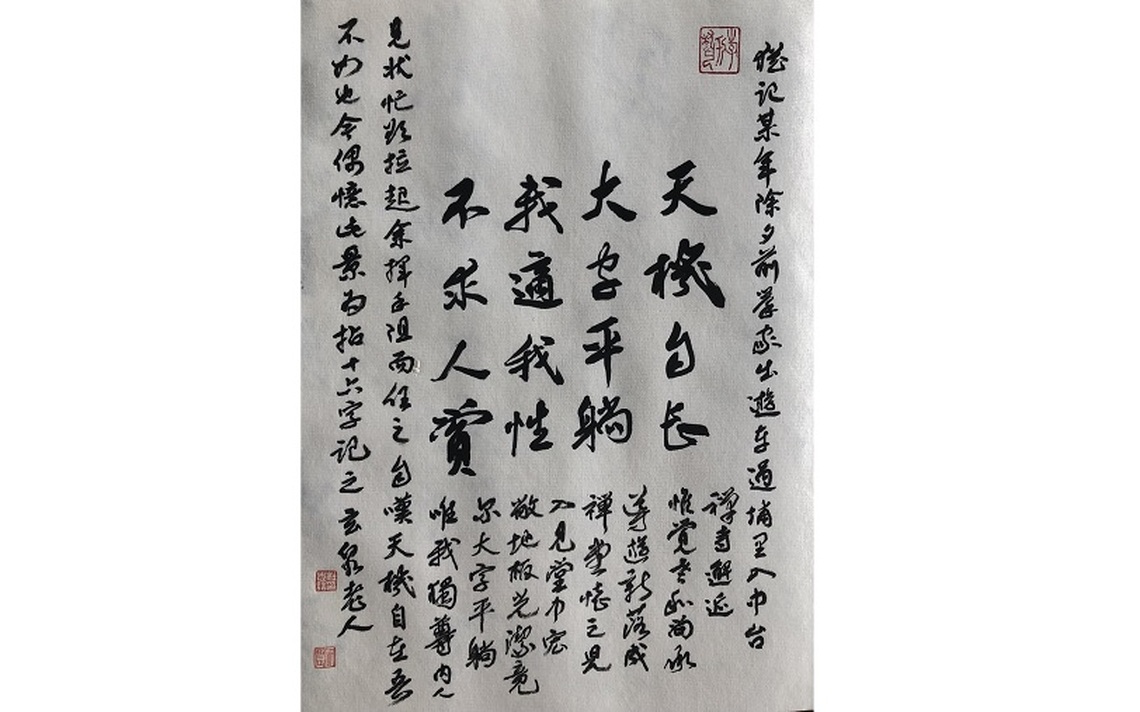 記某年除夕前舉家出遊車過埔里入中台
天機自長
大字平躺
我適我性
不求人賞
禪寺邂逅
惟覺老和尚承
導遊新落成
禪堂懷之兒
入見堂中宏
敞地板光潔竟
尔大字平躺
唯我獨尊內人
見狀忙欲拉起余揮手阻而任之自嘆天機自在吾
不如也今偶憶此景為拈十六字記之玄泉老人